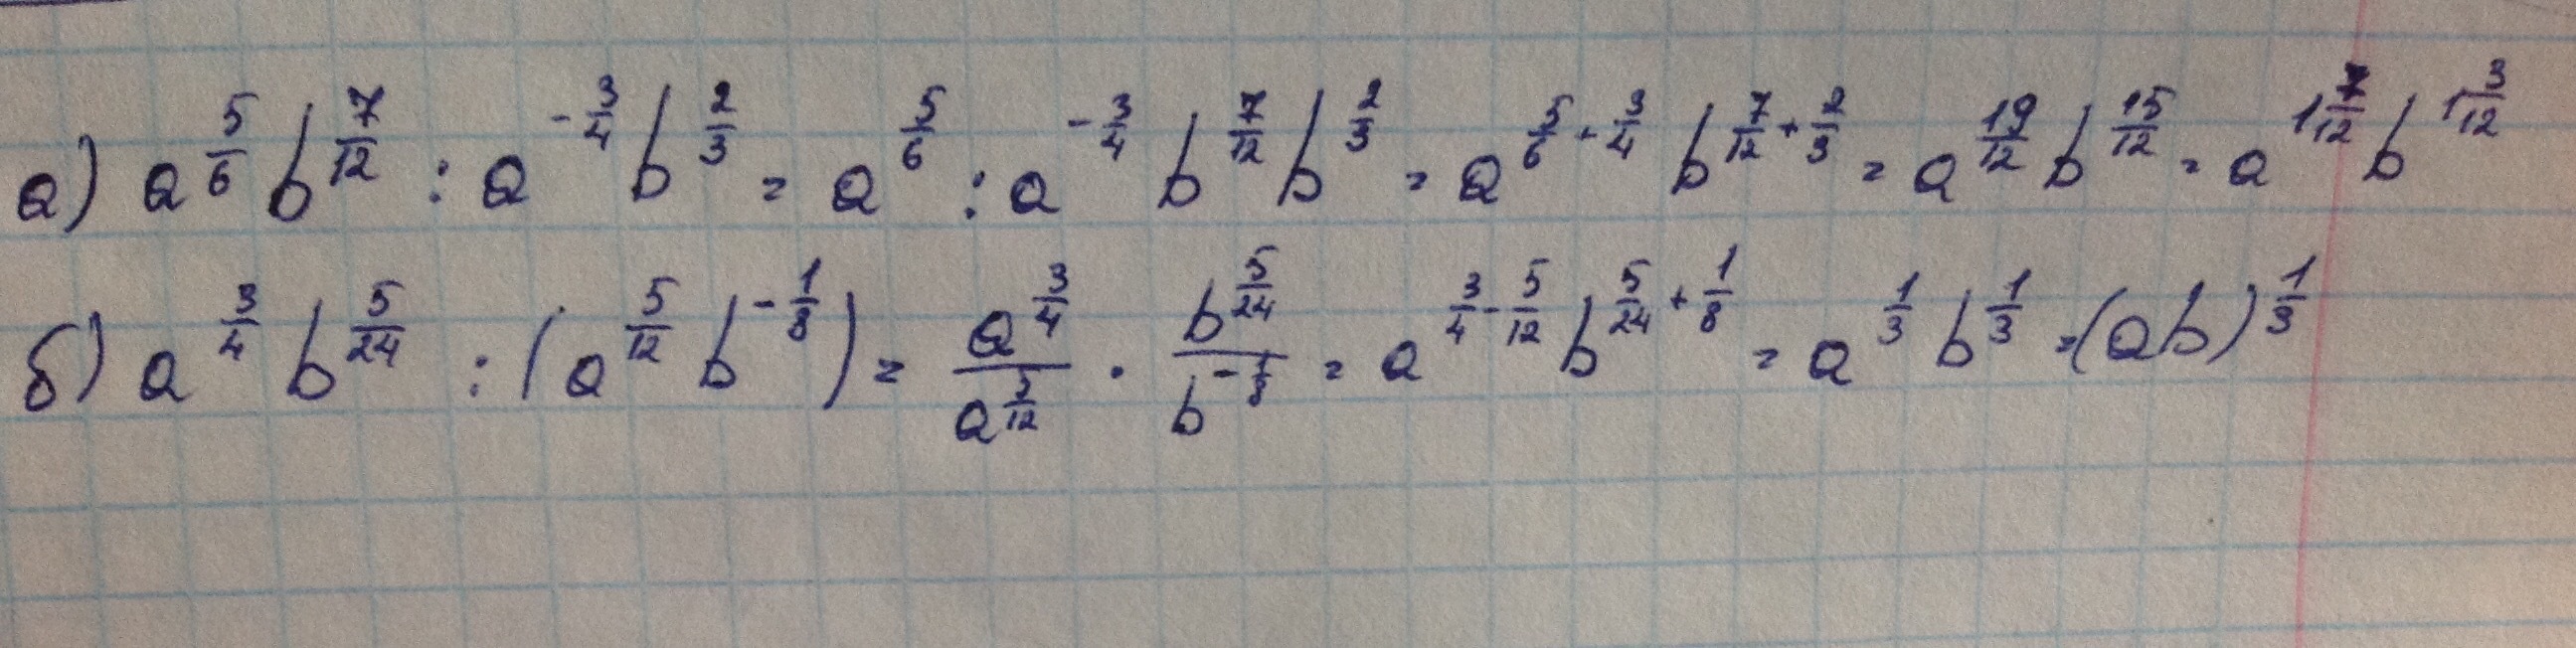 а) a^{5/6} b^{7/12} : a^{-3/4} b^{2/3} = a^{5/6} : a^{-3/4} b^{7/12} b^{2/3} = a^{5/6 + 3/4} b^{7/12 + 2/3} = a^{19/12} b^{15/12} = a^{1 7/12} b^{1 3/12}
б) a^{3/4} b^{5/24} : (a^{5/12} b^{-1/8}) = \frac{a^{3/4}}{a^{5/12}} · \frac{b^{5/24}}{b^{-1/8}} = a^{3/4 - 5/12} b^{5/24 + 1/8} = a^{1/3} b^{1/3} = (ab)^{1/3}